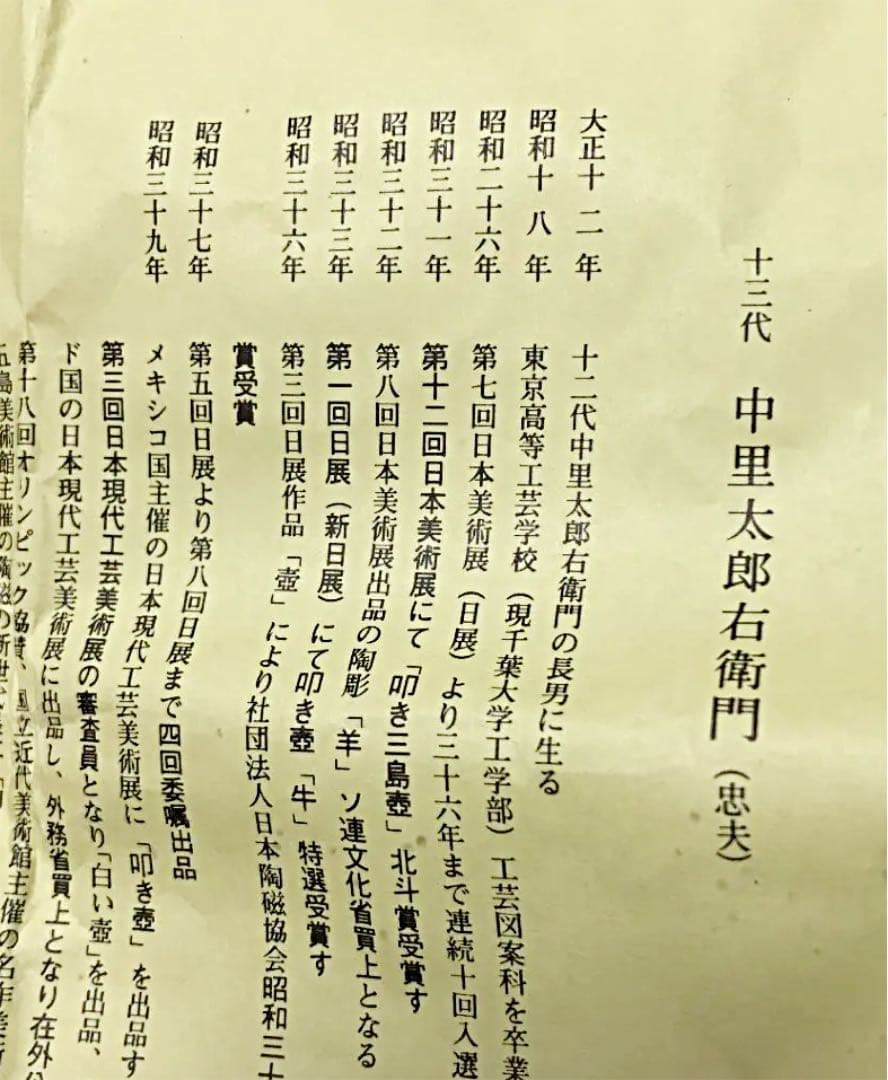 十三代 中里太郎右衛門(忠夫)
大正十二年 十二代中里太郎右衛門の長男に生る
昭和十八年 東京高等工芸学校(現千葉大学工学部)工芸図案科を卒業
昭和二十六年 第七回日本美術展(日展)より三十六年まで連続十回入選
昭和三十一年 第十二回日本美術展にて「叩き三島壺」北斗賞受賞す
昭和三十二年 第八回日本美術展出品の陶彫「羊」ソ連文化省買上となる
昭和三十三年 第一回日展(新日展)にて叩き壺「牛」特選受賞す
昭和三十六年 第三回日展作品「壺」により社団法人日本陶磁協会昭和三十
賞受賞
昭和三十七年 第五回日展より第八回日展まで四回委嘱出品
昭和三十九年 メキシコ国主催の日本現代工芸美術展に「叩き壺」を出品す
第三回日本現代工芸美術展の審査員となり「白い壺」を出品、
ド国の日本現代工芸美術展に出品し、外務省買上となり在外
第十八回オリンピック協賛、国立近代美術館主催の名作
五島美術館主催の陶磁の新世代